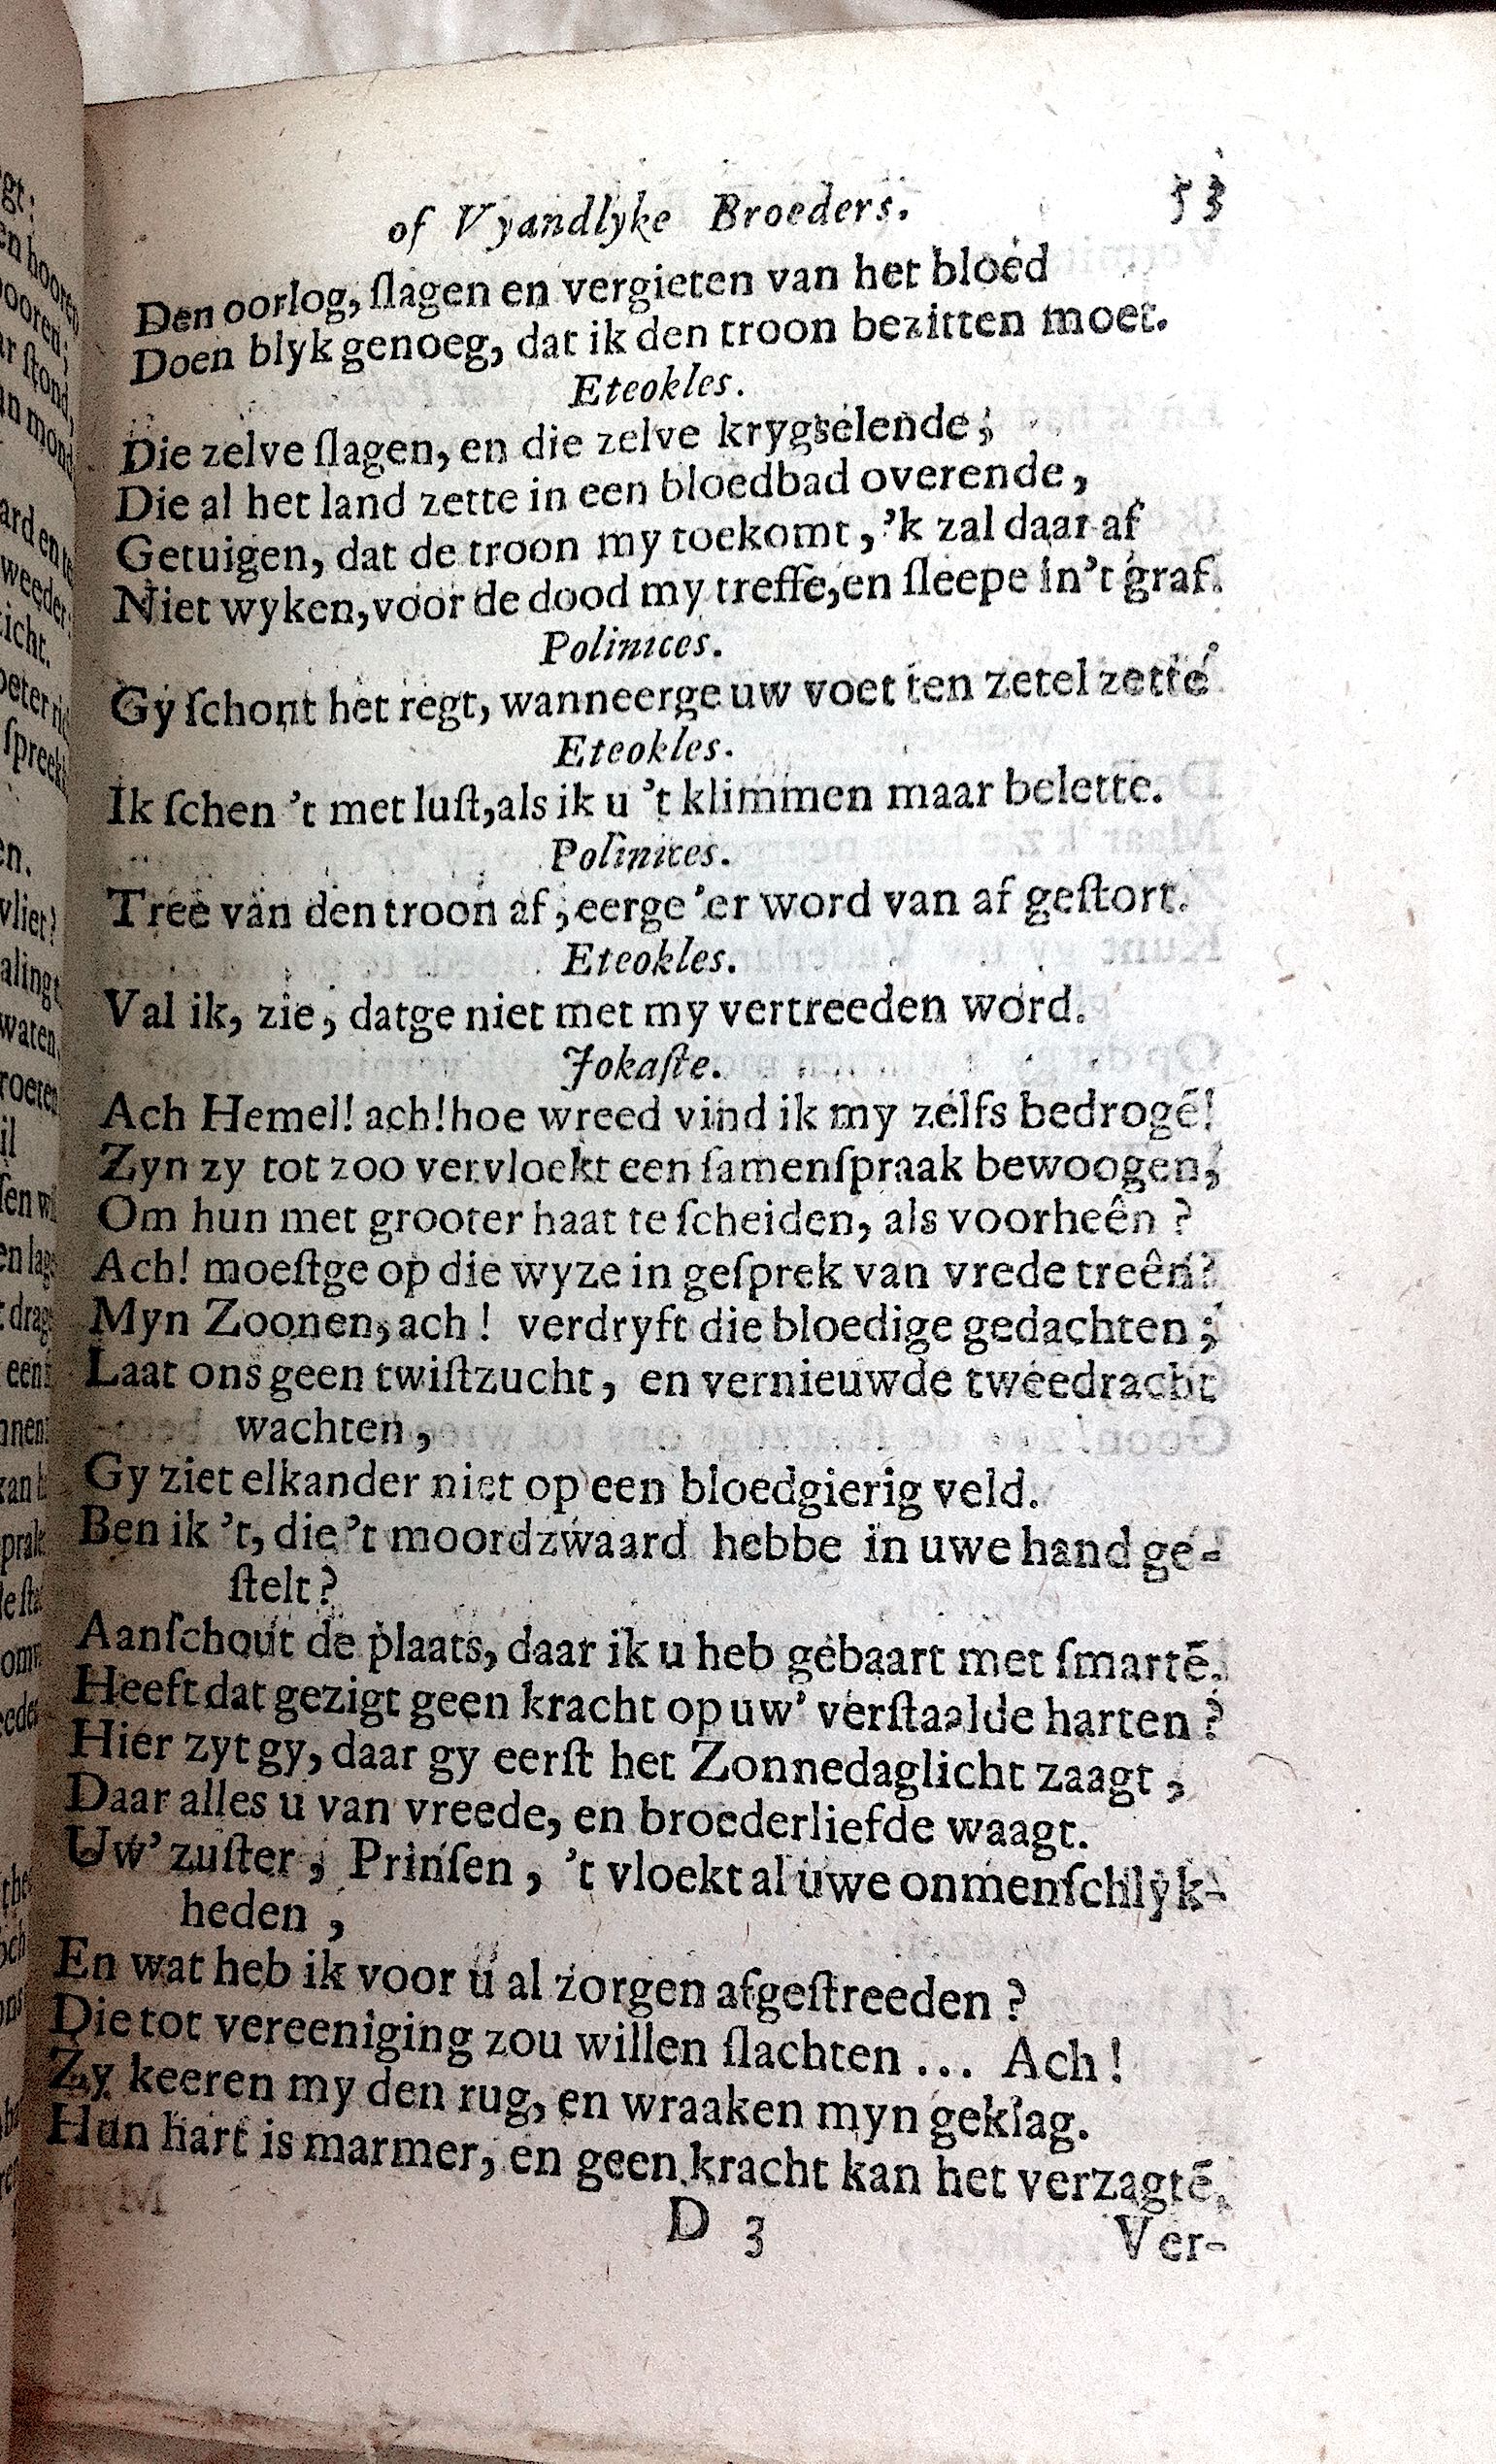 of Vyandlyke Broeders. 53
Den oorlog, ſlagen en vergieten van het bloed
Doen blyk genoeg, dat ik den troon bezitten moet.
Eteokles.
Die zelve ſlagen, en die zelve krygselende,
Die al het land zette in een bloedbad overende,
Getuigen, dat de troon my toekomt, 'k zal daar af
Niet wyken, voor de dood my treffe, en ſleepe in't graf.
Polinices.
Gy ſchont het regt, wanneerge uw voet ten zetel zette
Eteokles.
Ik ſchen 't met luſt, als ik u 't klimmen maar belette.
Polinices.
Tree van den troon af, eerge 'er word van af geſtort.
Eteokles.
Val ik, zie, datge niet met my vertreeden word.
Jokaſte.
Ach Hemel! ach! hoe wreed vind ik my zelfs bedrogē!
Zyn zy tot zoo vervloekt een ſamenſpraak bewoogen,
Om hun met grooter haat te ſcheiden, als voorheên?
Ach! moeſtge op die wyze in geſprek van vrede treên?
Myn Zoonen, ach! verdryft die bloedige gedachten;
Laat ons geen twiſtzucht, en vernieuwde tweedracht
wachten,
Gy ziet elkander niet op een bloedgierig veld.
Ben ik 't, die 't moordzwaard hebbe in uwe hand ge-
ſtelt?
Aanſchout de plaats, daar ik u heb gebaart met ſmartē.
Heeft dat gezigt geen kracht op uw' verſtaalde harten?
Hier zyt gy, daar gy eerſt het Zonnedaglicht zaagt,
Daar alles u van vreede, en broederliefde waagt.
Uw' zuſter, Prinſen, 't vloekt al uwe onmenſchlyk-
heden,
En wat heb ik voor u al zorgen afgeſtreeden?
Die tot vereeniging zou willen ſlachten ... Ach!
Zy keeren my den rug, en wraaken myn geklag.
Hun hart is marmer, en geen kracht kan het verzagtē.
D 3 Ver-